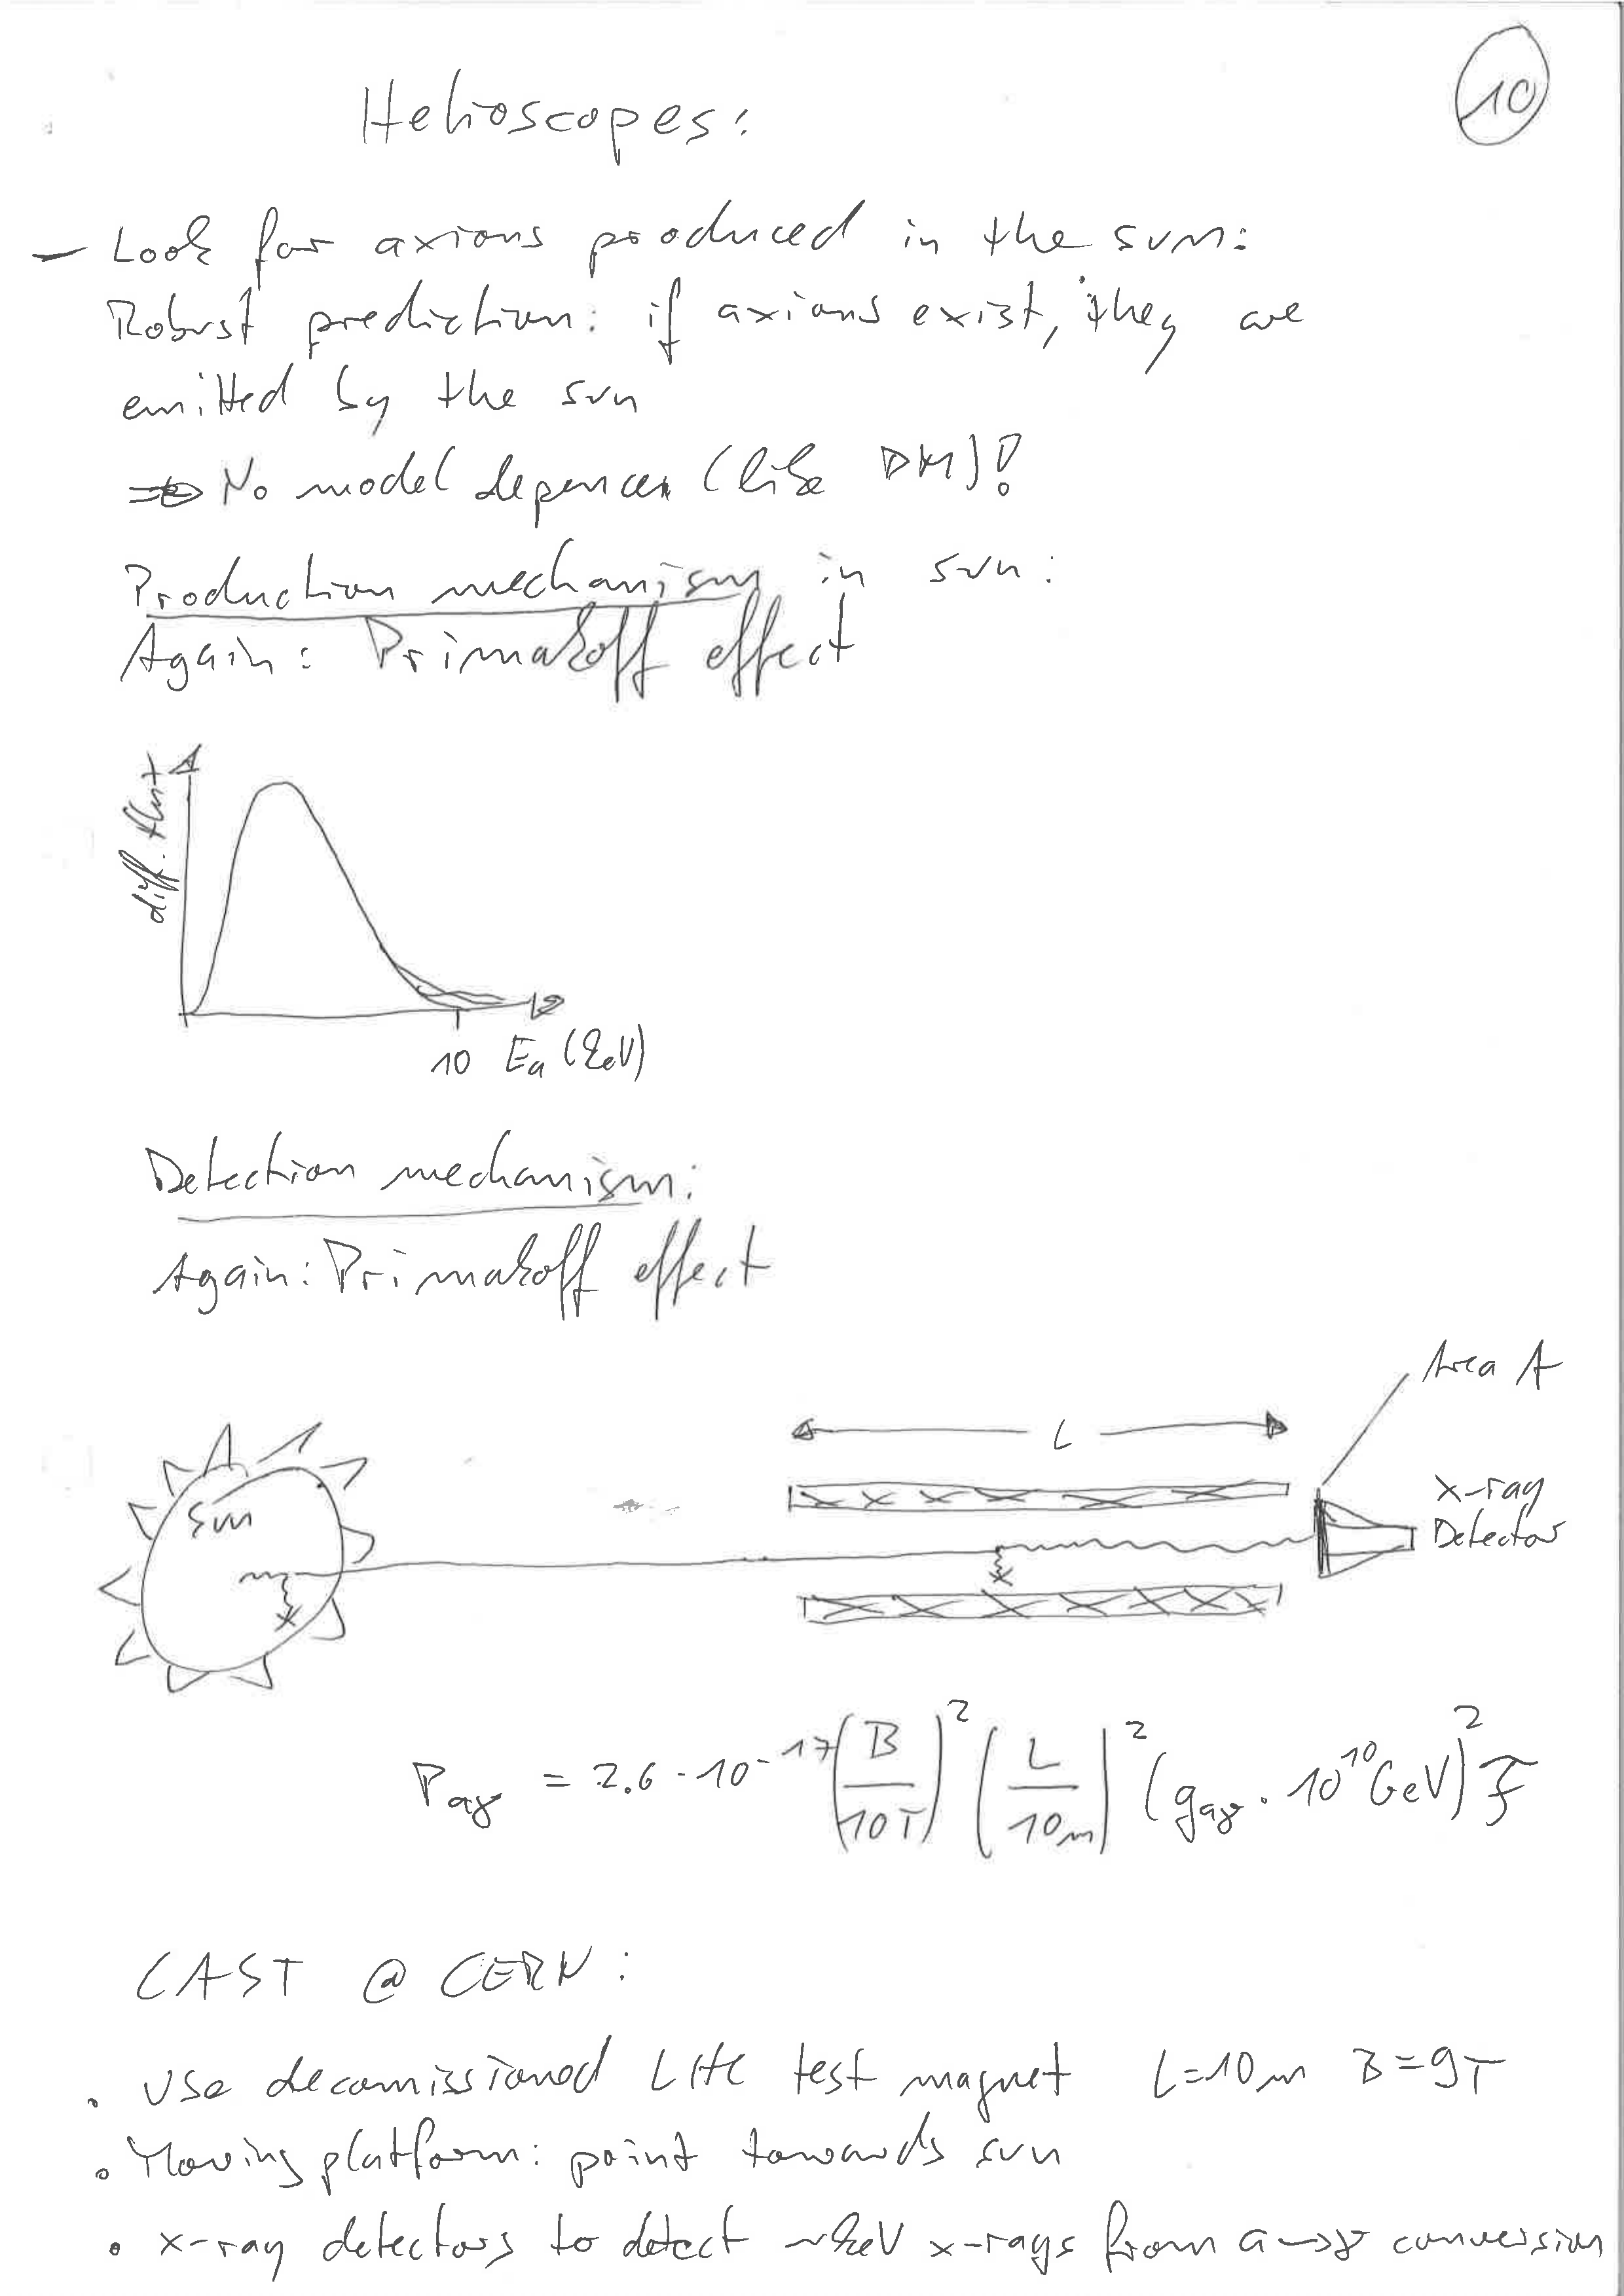 10
Helioscopes:
- Look for axions produced in the sun:
Robust prediction: if axions exist, they are
emitted by the sun
⇒ No model depencen (like DM)!
Production mechanism in sun:
Again: Primakoff effect
diff. flux
10 Ea (keV)
Detection mechanism:
Again: Primakoff effect
Area A
L
x-ray
Detector
sun
P_aγ = 2.6 · 10^-17 (B/10T)^2 (L/10m)^2 (g_aγ · 10^10 GeV)^2 F
CAST @ CERN:
• Use decomissioned LHC test magnet L=10m B=9T
• Moving platform: point towards sun
• x-ray detectors to detect ~keV x-rays from a→γ conversion